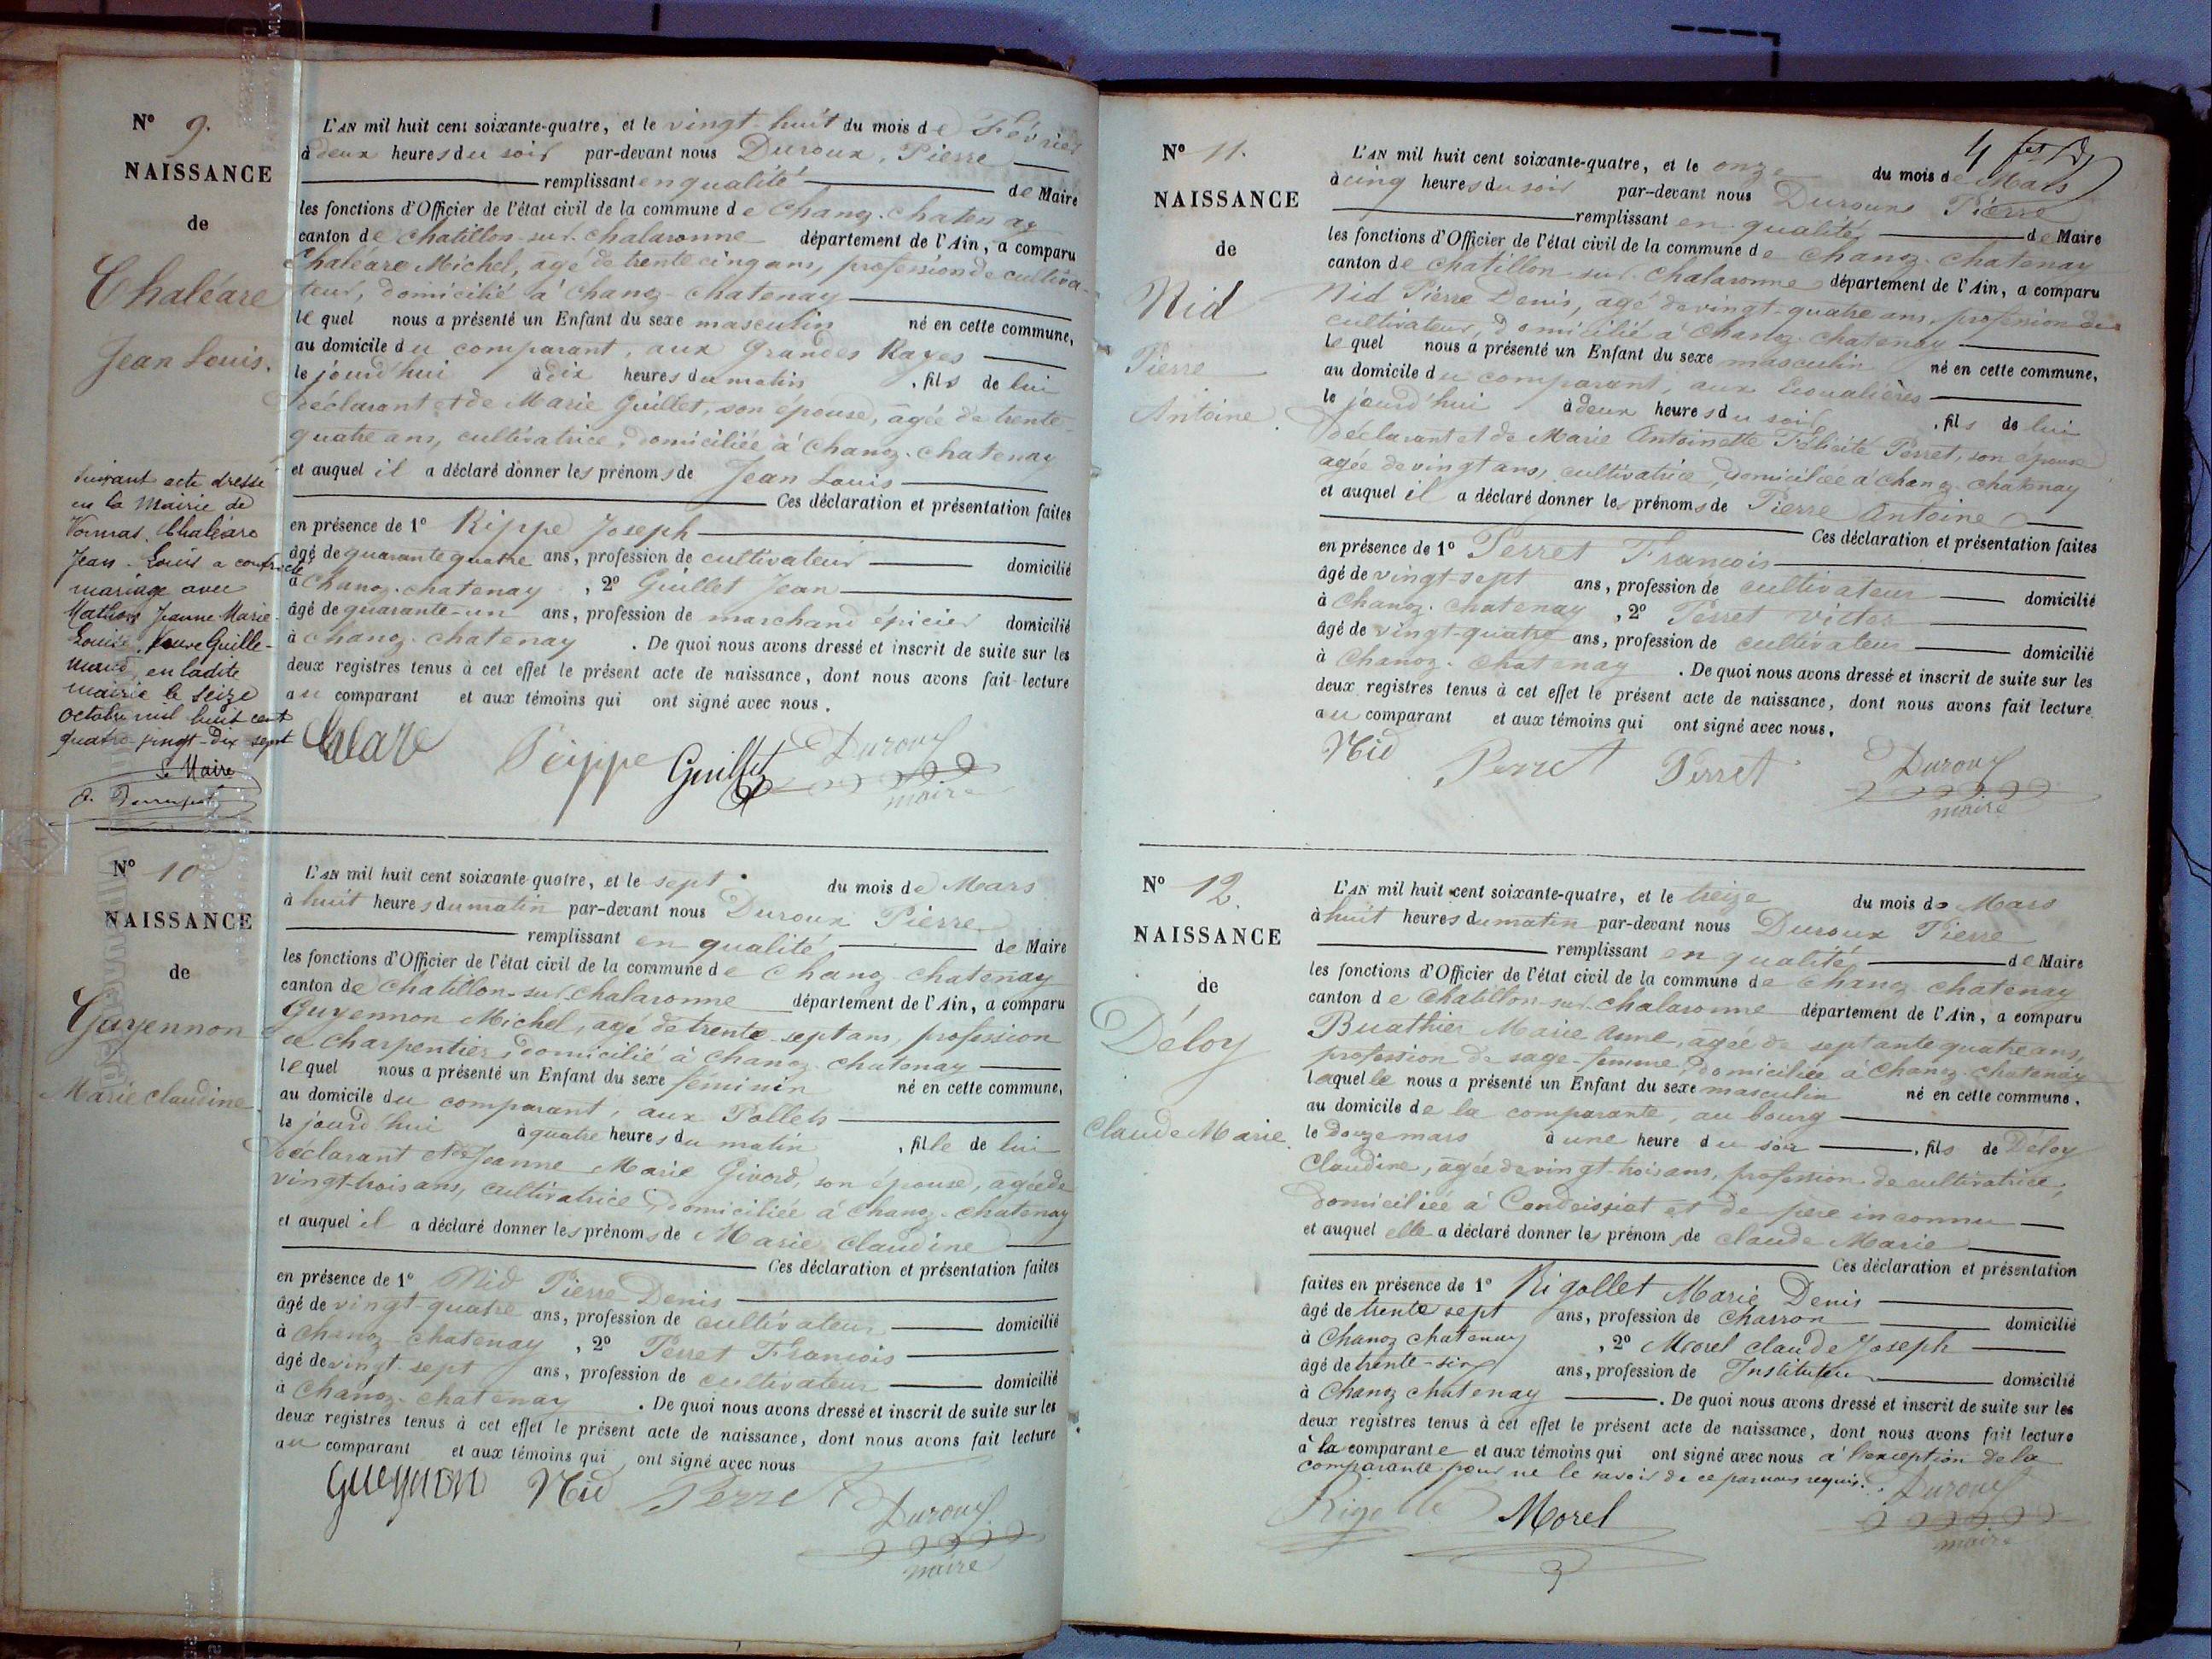 N° 9.
NAISSANCE
de
Chaléare
Jean Louis.
L'AN mil huit cent soixante-quatre, et le vingt-huit du mois de Février
à deux heures du soir par-devant nous Duroux, Pierre
remplissant en qualité de Maire
les fonctions d'Officier de l'état civil de la commune de Chanoz-Chatenay
canton de Chatillon-sur-Chalaronne département de l'Ain, a comparu
Chaléare Michel, agé de trente cinq ans, profession de cultiva-
teur, domicilié à Chanoz-Chatenay
lequel nous a présenté un Enfant du sexe masculin né en cette commune,
au domicile du comparant, aux Grandes Rayes
le jourd'hui à dix heures du matin, fils de lui
déclarant et de Marie Guillet, son épouse, agée de trente-
quatre ans, cultivatrice, domiciliée à Chanoz-Chatenay
et auquel il a déclaré donner les prénoms de Jean Louis
Ces déclaration et présentation faites
en présence de 1° Rippe Joseph
âgé de quarante quatre ans, profession de cultivateur domicilié
à Chanoz-Chatenay, 2° Guillet Jean
âgé de quarante-un ans, profession de marchand épicier domicilié
à Chanoz-Chatenay. De quoi nous avons dressé et inscrit de suite sur les
deux registres tenus à cet effet le présent acte de naissance, dont nous avons fait lecture
au comparant et aux témoins qui ont signé avec nous.
Suivant acte dressé
en la Mairie de
Vonnas, Chaléare
Jean-Louis a contracté
mariage avec
Jeanne Marie
Louise, veuve Guille-
en ladite
mairie le seize
octobre mil huit cent
quatre vingt-dix sept
Le Maire
Rippe Guillet Duroux
maire
N° 10
NAISSANCE
de
Guyennon
Marie Claudine
L'AN mil huit cent soixante-quatre, et le sept du mois de Mars
à huit heures du matin par-devant nous Duroux Pierre
remplissant en qualité de Maire
les fonctions d'Officier de l'état civil de la commune de Chanoz-Chatenay
canton de Chatillon-sur-Chalaronne département de l'Ain, a comparu
Guyennon Michel, agé de trente-sept ans, profession
de charpentier, domicilié à Chanoz-Chatenay
lequel nous a présenté un Enfant du sexe féminin né en cette commune,
au domicile du comparant, aux Pollets
le jourd'hui à quatre heures du matin, fille de lui
déclarant et de Jeanne Marie Givord, son épouse, agée de
vingt-trois ans, cultivatrice, domiciliée à Chanoz-Chatenay
et auquel il a déclaré donner les prénoms de Marie Claudine
Ces déclaration et présentation faites
en présence de 1° Nid Pierre Denis
âgé de vingt-quatre ans, profession de cultivateur domicilié
à Chanoz-Chatenay, 2° Perret François
âgé de vingt-sept ans, profession de cultivateur domicilié
à Chanoz-Chatenay. De quoi nous avons dressé et inscrit de suite sur les
deux registres tenus à cet effet le présent acte de naissance, dont nous avons fait lecture
au comparant et aux témoins qui ont signé avec nous
Nid Perret Duroux
maire
4
N° 11.
NAISSANCE
de
Nid
Pierre
Antoine.
L'AN mil huit cent soixante-quatre, et le onze du mois de Mars
à cinq heures du soir par-devant nous Duroux Pierre
remplissant en qualité de Maire
les fonctions d'Officier de l'état civil de la commune de Chanoz-Chatenay
canton de Chatillon-sur-Chalaronne département de l'Ain, a comparu
Nid Pierre Denis, agé de vingt-quatre ans, profession de
cultivateur, domicilié à Chanoz-Chatenay
lequel nous a présenté un Enfant du sexe masculin né en cette commune,
au domicile du comparant, aux
le jourd'hui à deux heures du soir, fils de lui
déclarant et de Marie Antoinette Félicité Perret, son épouse
agée de vingt ans, cultivatrice, domiciliée à Chanoz-Chatenay
et auquel il a déclaré donner les prénoms de Pierre Antoine
Ces déclaration et présentation faites
en présence de 1° Perret François
âgé de vingt-sept ans, profession de cultivateur domicilié
à Chanoz-Chatenay, 2° Perret Victor
âgé de vingt-quatre ans, profession de cultivateur domicilié
à Chanoz-Chatenay. De quoi nous avons dressé et inscrit de suite sur les
deux registres tenus à cet effet le présent acte de naissance, dont nous avons fait lecture
au comparant et aux témoins qui ont signé avec nous.
Nid Perret Perret Duroux
maire
N° 12.
NAISSANCE
de
Déloy
Claude Marie.
L'AN mil huit cent soixante-quatre, et le treize du mois de Mars
à huit heures du matin par-devant nous Duroux Pierre
remplissant en qualité de Maire
les fonctions d'Officier de l'état civil de la commune de Chanoz-Chatenay
canton de Chatillon-sur-Chalaronne département de l'Ain, a comparu
Buathier Marie Anne, agée de septante quatre ans,
profession de sage-femme, domiciliée à Chanoz-Chatenay
laquelle nous a présenté un Enfant du sexe masculin né en cette commune,
au domicile de la comparante, au bourg
le douze mars à une heure du soir, fils de Déloy
Claudine, agée de vingt-trois ans, profession de cultivatrice,
domiciliée à Condeissiat et de père inconnu
et auquel elle a déclaré donner les prénoms de Claude Marie
Ces déclaration et présentation
faites en présence de 1° Rigollet Marie Denis
âgé de trente sept ans, profession de Charron domicilié
à Chanoz Chatenay, 2° Morel Claude Joseph
âgé de trente-cinq ans, profession de Instituteur domicilié
à Chanoz Chatenay. De quoi nous avons dressé et inscrit de suite sur les
deux registres tenus à cet effet le présent acte de naissance, dont nous avons fait lecture
à la comparante et aux témoins qui ont signé avec nous à l'exception de la
comparante pour ne le savoir de ce par nous requis.
Rigollet Morel Duroux
maire